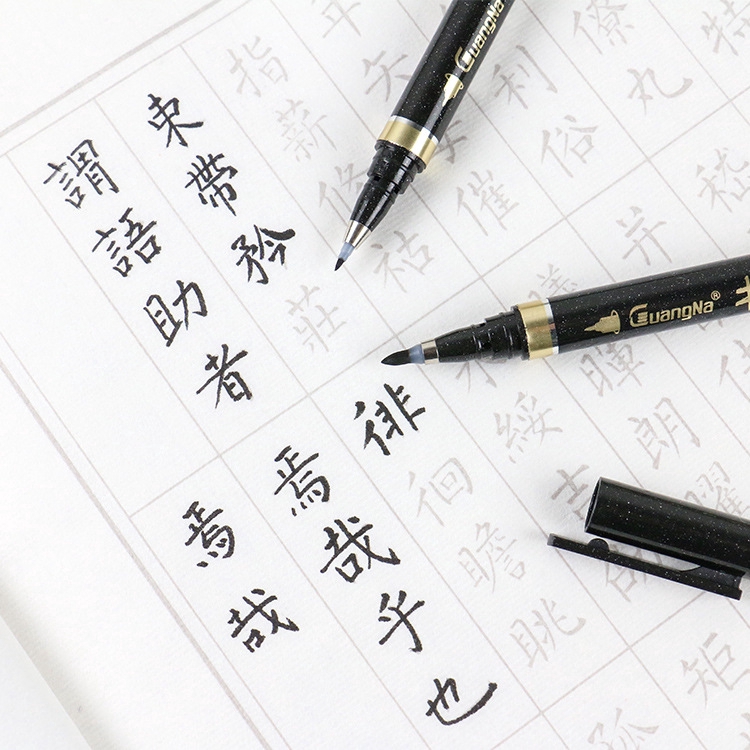 GuangNa
GuangNa®
特
僚丸
嵇
利俗
並
年矢
催
曦暉朗曜
指薪修祜
永綏吉劭
束帶矜莊
徘徊瞻眺
謂語助者
焉哉乎也
焉哉
矩
孤